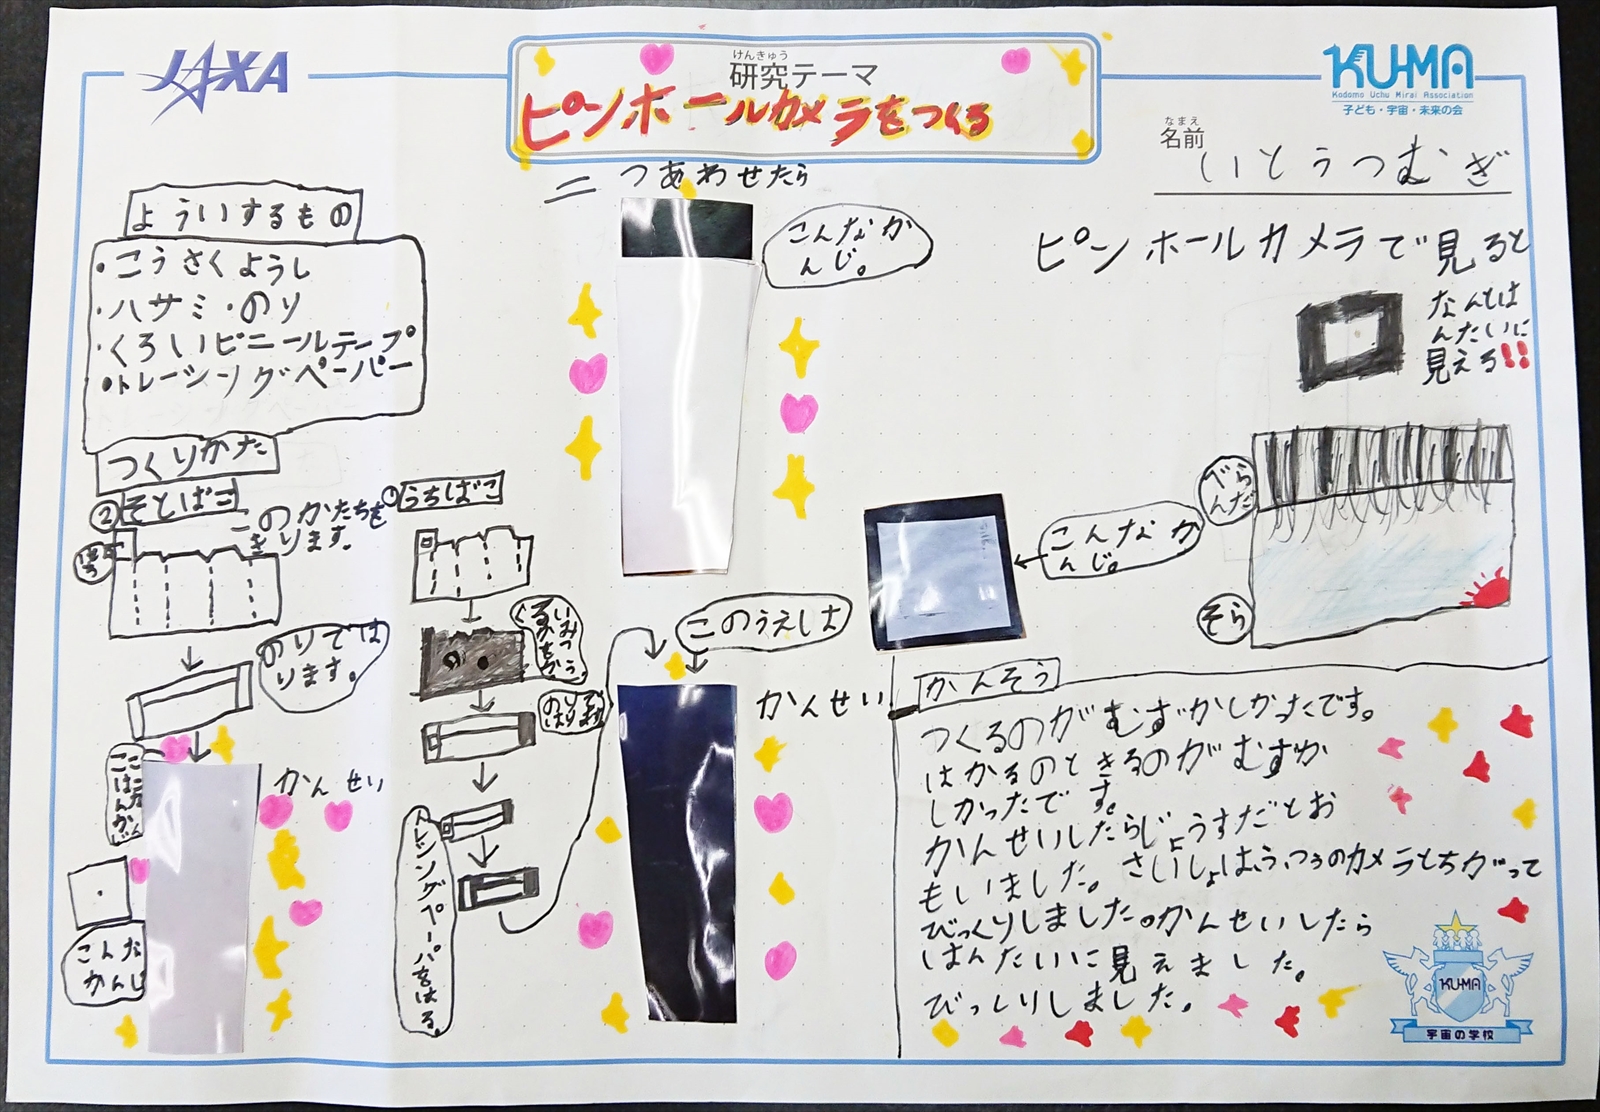 JAXA
けんきゅう
研究テーマ
ピンホールカメラをつくる
KU-MA
Kodomo Uchu Mirai Association
子ども・宇宙・未来の会
なまえ
名前
いとうつむぎ
よういするもの
・こうさくようし
・ハサミ・のり
・くろいビニールテープ
・トレーシングペーパー
つくりかた
②そとばこ
このかたちを
きります。
のりでは
ります。
かんせい
こんな
かんじ
①うちばこ
トレシングペーパをはる。
二つあわせたら
こんなか
んじ。
このうえしは
かんせい
ピンホールカメラで見ると
なんとは
んたいに
見える!!
こんなか
んじ。
べら
んだ
そら
かんそう
つくるのがむずかしかったです。
はかるのときるのがむずか
しかったです。
かんせいしたらじょうずだとお
もいました。さいしょは、ふつうのカメラとちがって
びっくりしました。かんせいしたら
はんたいに見えました。
びっくりしました。
KU-MA
宇宙の学校